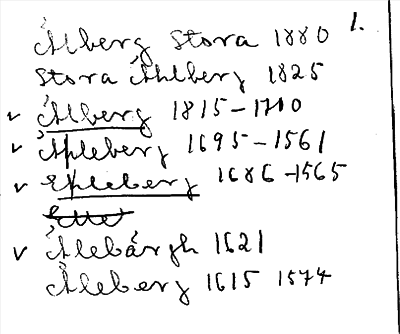 Ålberg Stora 1880 1.
Stora Åhlberg 1825
v Ålberg 1815-1710
v Äpleberg 1695-1561
v Epleberg 1686-1565
v Ålebärgh 1621
Åleberg 1615 1574